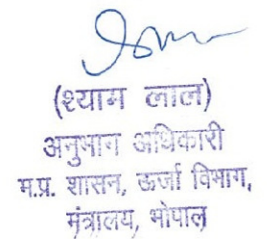 (श्याम लाल)
अनुभाग अधिकारी
म.प्र. शासन, ऊर्जा विभाग,
मंत्रालय, भोपाल